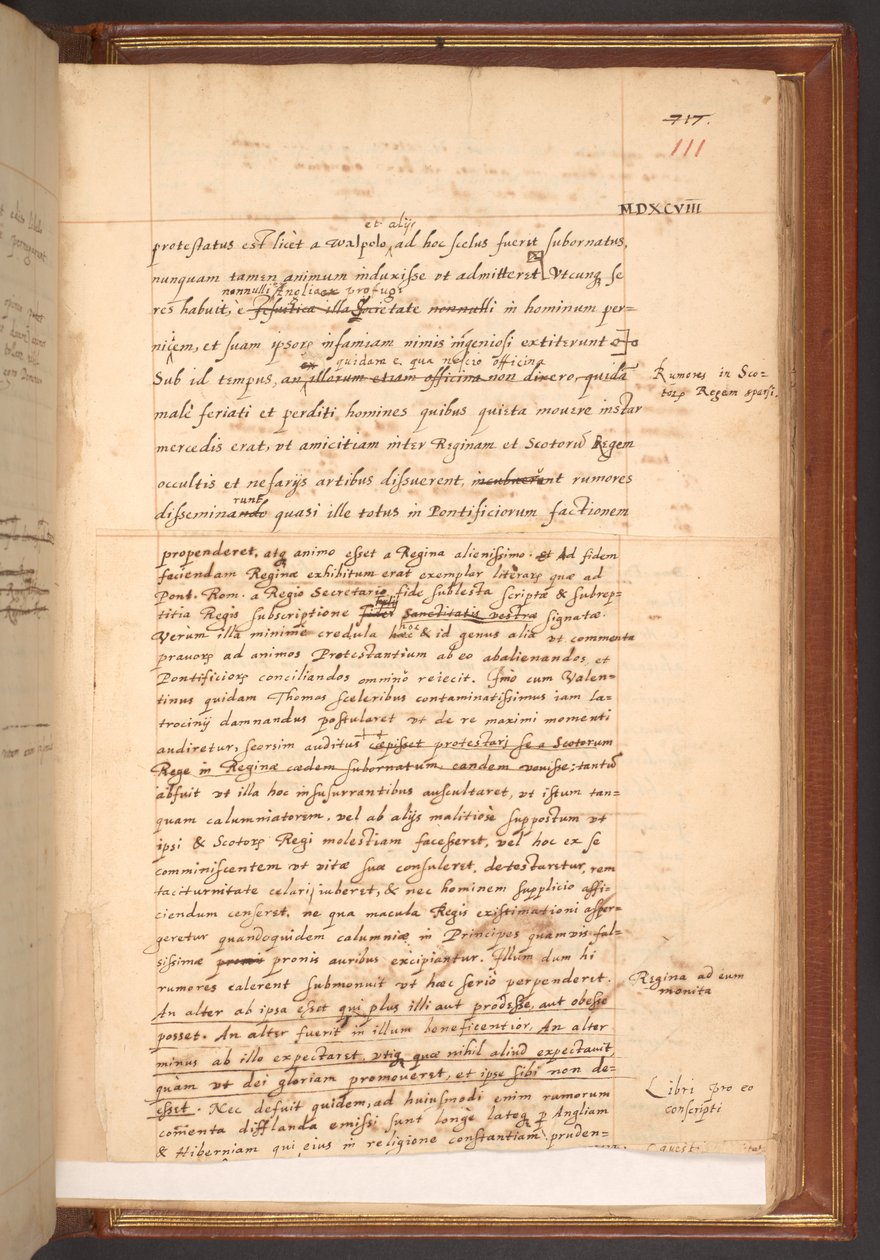 717.
111
MDXCVIII
et alijs
protestatus est licèt a Walpolo ad hoc scelus fuerit subornatus,
nunquam tamen animum induxisse vt admitteret. Vtcunq se
nonnulli Angliæ profugi
res habuit, è Jesuitica illa Societate nonnulli in hominum per=
niciem, et suam ipsorum infamiam nimis ingeniosi extiterunt
quidam e qua nescio officina
Sub id tempus, an illorum etiam officina non dixero, quidã
Rumores in Sco=
torum Regem sparsi.
malè feriati et perditi homines quibus quieta mouere instar
mercedis erat, vt amicitiam inter Reginam et Scotorũ Regem
occultis et nefarijs artibus dissuerent, incubuerũnt rumores
runt
disseminando quasi ille totus in Pontificiorum factionem
propenderet, atq animo esset a Regina alienissimo. et Ad fidem
faciendam Reginæ exhibitum erat exemplar literarum quæ ad
Pont. Rom. a Regio Secretario fide sublesta scriptæ & subrep=
titia Regis subscriptione Sanctitatis vestræ signatæ.
Verùm illa minimè credula hæc & id genus alia vt commenta
hoc
prauorum ad animos Protestantium ab eo abalienandos et
Pontificiorum conciliandos omninò reiecit. Imo cum Valen=
tinus quidam Thomas sceleribus contaminatissimus iam la=
trocinij damnandus postularet vt de re maximi momenti
audiretur, seorsim auditus cæpisset protestari se a Scotorum
Rege in Reginæ cædem subornatum, eandem vouisse; tantũ
abfuit vt illa hoc insusurrantibus auscultaret, vt istum tan=
quam calumniatorem, vel ab alijs malitiosè suppostum vt
ipsi & Scotorum Regi molestiam facesseret, vel hoc ex se
comminiscentem vt vitæ suæ consuleret, detestaretur, rem
taciturnitate celari iuberet, & nec hominem supplicio affi=
ciendum censeret, ne qua macula Regis existimationi asper=
geretur quandoquidem calumniæ in Principes quamvis fal=
sissimæ pronis auribus excipiantur. Illum dum hi
rumores calerent submonuit vt hæc seriò perpenderet.
Regina ad eum
monita
An alter ab ipsa esset qui plus illi aut prodesse, aut obesse
posset. An alter fuerit in illum beneficentior, An alter
minus ab illo expectaret, vtiq quæ nihil aliud expectauit,
quàm vt dei gloriam promoueret, et ipse sibi non de=
esset. Nec defuit quidem, ad huiusmodi enim rumorum
Libri pro eo
conscripti
comenta difflanda emissi sunt longè lateq p Angliam
& Hiberniam qui eius in religione constantiam pruden=